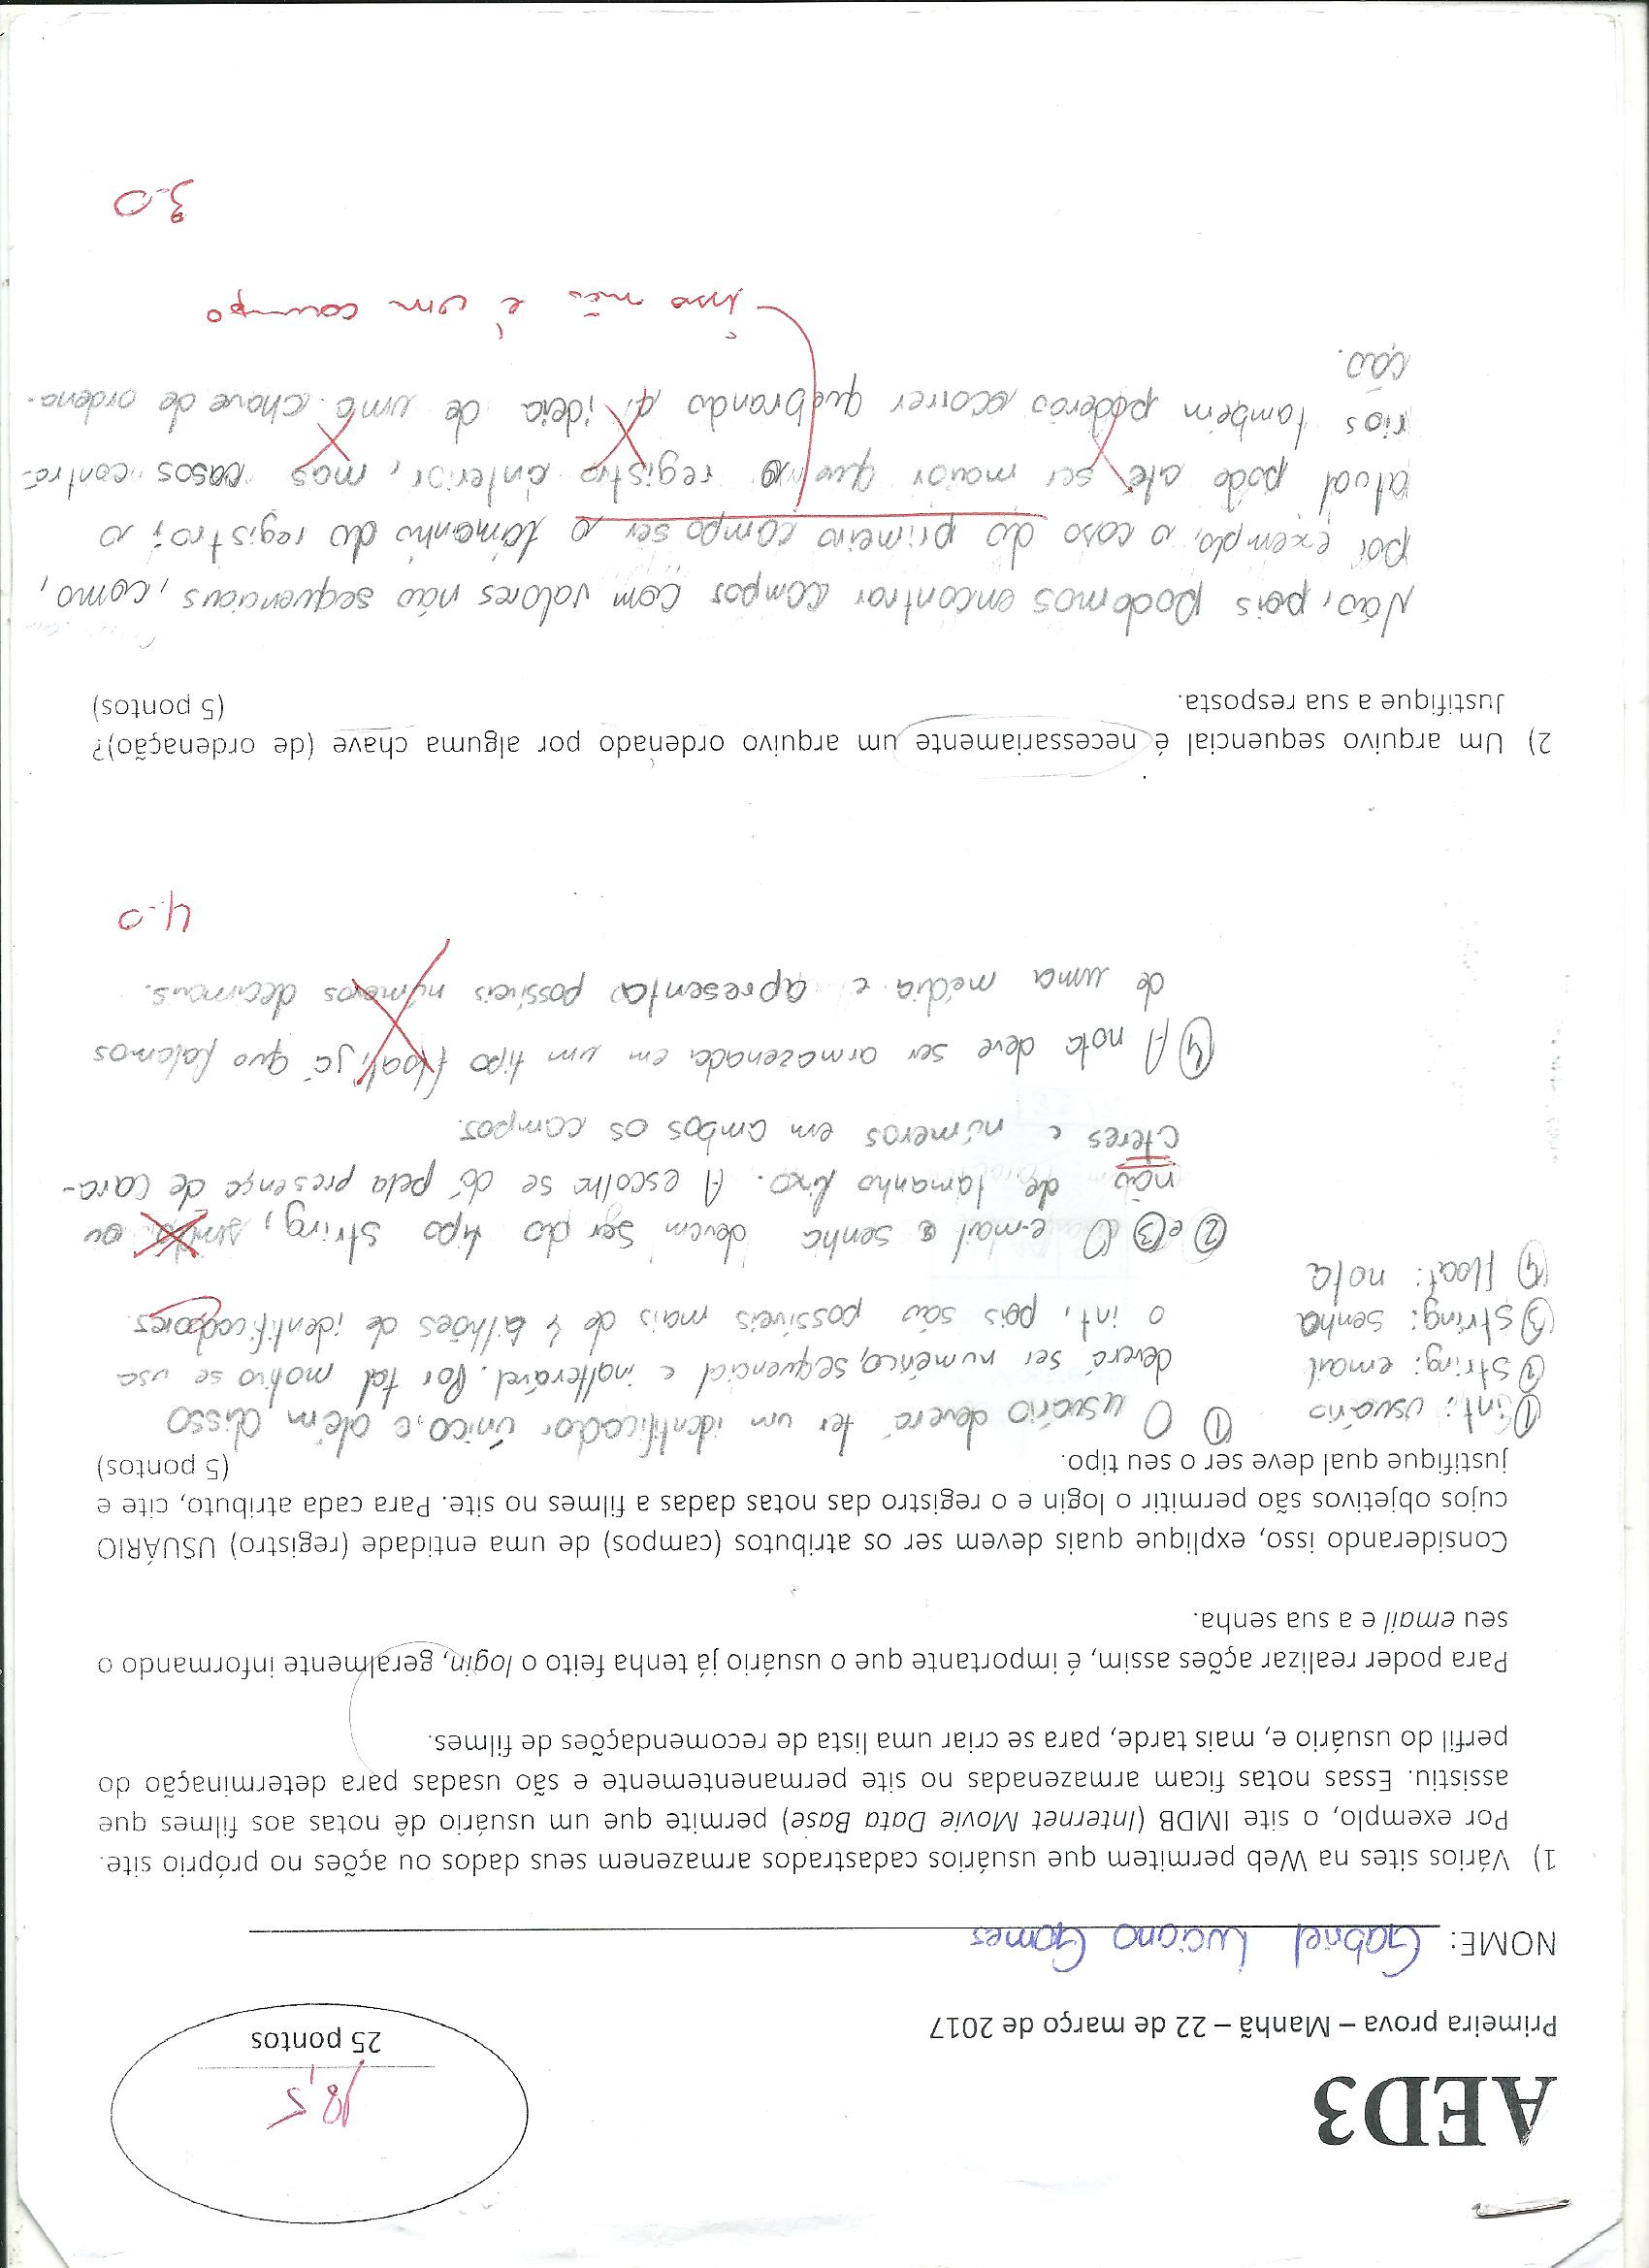 AED3
18,5
25 pontos
Primeira prova – Manhã – 22 de março de 2017
NOME: Gabriel Luciano Gomes
1) Vários sites na Web permitem que usuários cadastrados armazenem seus dados ou ações no próprio site.
Por exemplo, o site IMDB (Internet Movie Data Base) permite que um usuário dê notas aos filmes que
assistiu. Essas notas ficam armazenadas no site permanentemente e são usadas para determinação do
perfil do usuário e, mais tarde, para se criar uma lista de recomendações de filmes.
Para poder realizar ações assim, é importante que o usuário já tenha feito o login, geralmente informando o
seu email e a sua senha.
Considerando isso, explique quais devem ser os atributos (campos) de uma entidade (registro) USUÁRIO
cujos objetivos são permitir o login e o registro das notas dadas a filmes no site. Para cada atributo, cite e
justifique qual deve ser o seu tipo. (5 pontos)
① int: usuário
② string: email
③ string: senha
④ float: nota
① O usuário deverá ter um identificador único, e além disso
deverá ser numérico, sequencial e inalterável. Por tal motivo se usa
o int, pois são possíveis mais de 4 bilhões de identificadores.
② e ③ O e-mail e senha devem ser do tipo string, ou
não de tamanho fixo. A escolha se dá pela presença de cara-
cteres e números em ambos os campos.
④ A nota deve ser armazenada em um tipo float, já que falamos
de uma média e apresenta possíveis números decimais.
4.0
2) Um arquivo sequencial é necessariamente um arquivo ordenado por alguma chave (de ordenação)?
Justifique a sua resposta. (5 pontos)
Não, pois podemos encontrar campos com valores não sequenciais, como,
por exemplo, o caso do primeiro campo ser o tamanho do registro; o
atual pode até ser maior que o registro anterior, mas casos contrá-
rios também poderão ocorrer quebrando a ideia de uma chave de ordena-
ção.
isso não é um campo
3.0